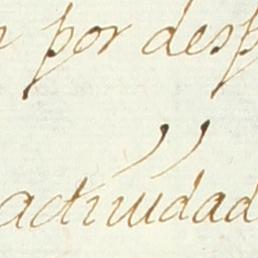 por desp
actiuidad